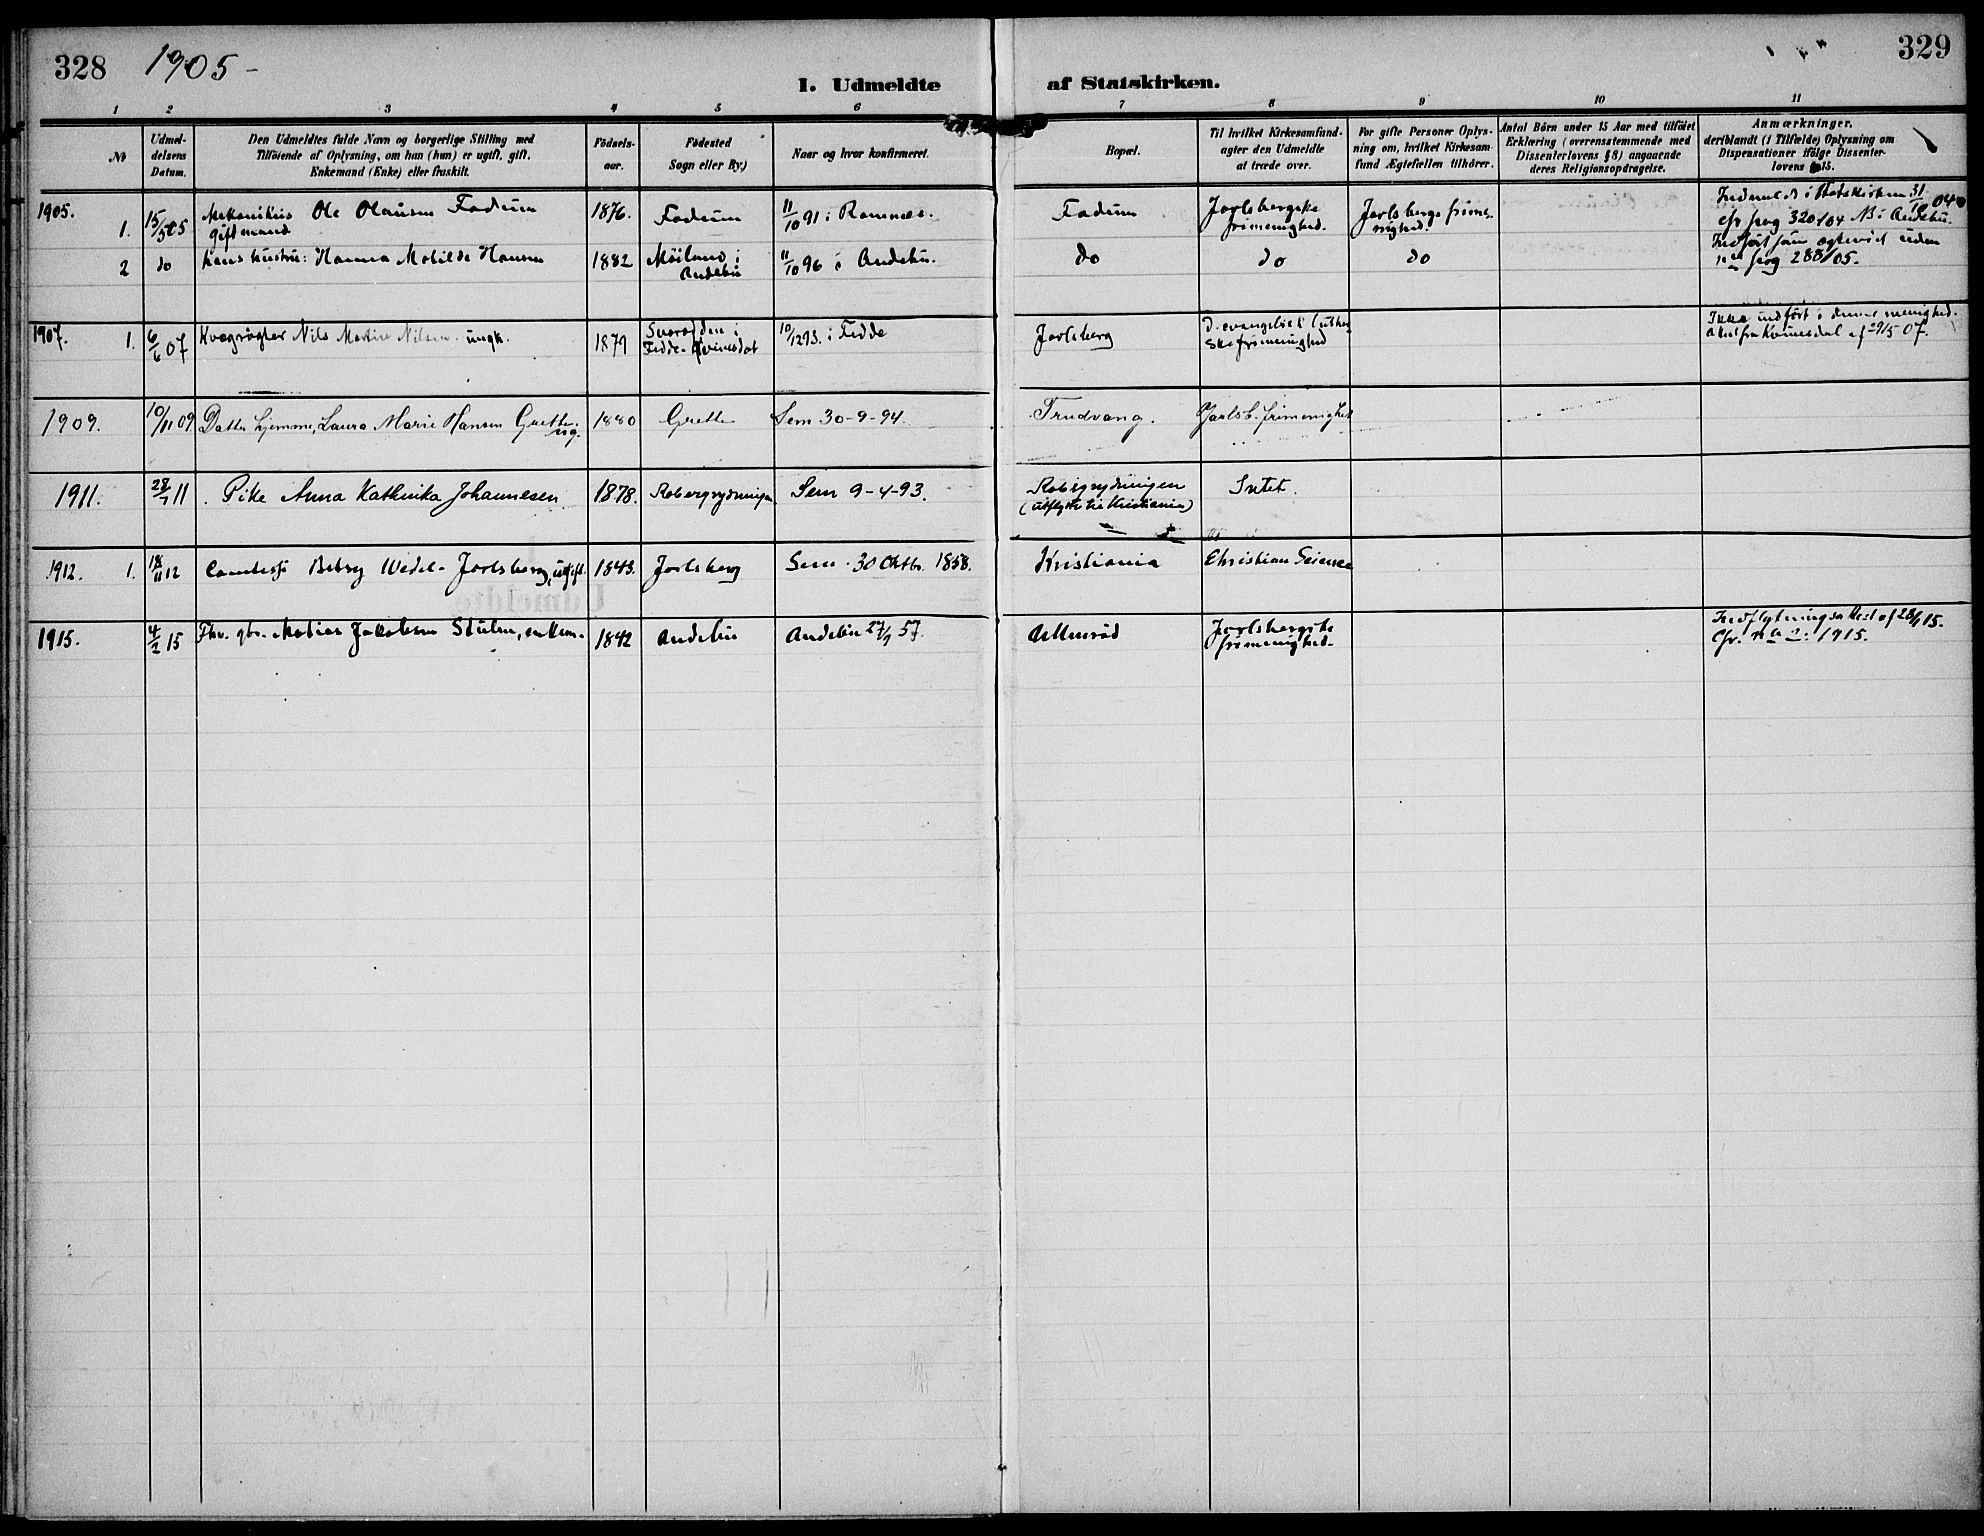 328 1905 -
I. Udmeldte af Statskirken.
329
1 2 3 4 5 6 7 8 9 10 11
№
Udmel-
delsens
Datum.
Den Udmeldtes fulde Navn og borgerlige Stilling med
Tilföiende af Oplysning, om han (hun) er ugift, gift,
Enkemand (Enke) eller fraskilt.
Födsels-
aar.
Födested
Sogn eller By.)
Naar og hvor konfirmeret.
Bopæl.
Til hvilket Kirkesamfund-
agter den Udmeldte
at træde over.
For gifte Personer Oplys-
ning om, hvilket Kirkesam-
fund Ægtefællen tilhörer.
Antal Börn under 15 Aar med tilföiet
Erklæring (overensstemmende med
Dissenterlovens § 8) angaaende
deres Religionsopdragelse.
Anmærkninger,
deriblandt (i Tilfælde) Oplysning om
Dispensationer ifölge Dissenter-
lovens § 15.
1905.
1. 15/5 05 Mekanikus Ole Olausen Fadum 1876. Fadum 11/10 91 i Ramnæs. Fadum Jarlsbergske Jarlsbergs frime- Indmeldt i Statskirken 31/10 04
giftmand frimenighed. nighed. cfr pag 320/04 N: Andebu.
2 do Hans hustru: Hanna Matilde Hansen 1882 Möiland i 11/10 96 i Andebu. do do do Indfört som ægteviet uden
Andebu pag 288/05.
1907. 1. 6/6 07 Kvægrögter Nils Martin Nilsen. ungk. 1879 i 10/12 93. i Fedde Jarlsberg D. evangelisk luther Ikke indfört i denne menighed.
Fedde - Qvinesdal ske frimenighed Attest fra Kvinesdal af 29/5 07.
1909. 10/11 09 Datter hjemme, Laura Marie Hansen Grette. 1880 Grette Sem 30-9-94. Trudvang. Jarlsb. frimenighet
ug.
1911. 28/7 11 Pike Anna Kathinka Johannesen 1878. Robergrydningen Sem 9-4-93. Robergrydningen Intet.
(utflyttet til Kristiania)
1912. 1. 18/11 12 Comtesse Betsy Wedel-Jarlsberg, ugift. 1843. Jarlsberg Sem. 30 Oktbr. 1858. Kristiania Christian Science
1915. 4/2 15 Fhv. gbr. Matias Jakobsen Stulen, enkem. 1842 Andebu Andebu 27/9 57. Ullensröd Jarlsbergske Indflytningsattest af 28/1 15.
frimenighed. Cfr. no 2. 1915.